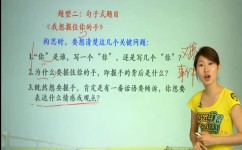 题型二：句子式题目
《我想握住你的手》
构思时，要想清楚这几个关键问题：
1."你"是谁，写一个"你"，还是写几个"你"？
2.为什么要握住你的手，即握手的背后是什么？
3.既然想要握手，肯定是有一番话语要倾诉，你想要
表达什么情感或观点？